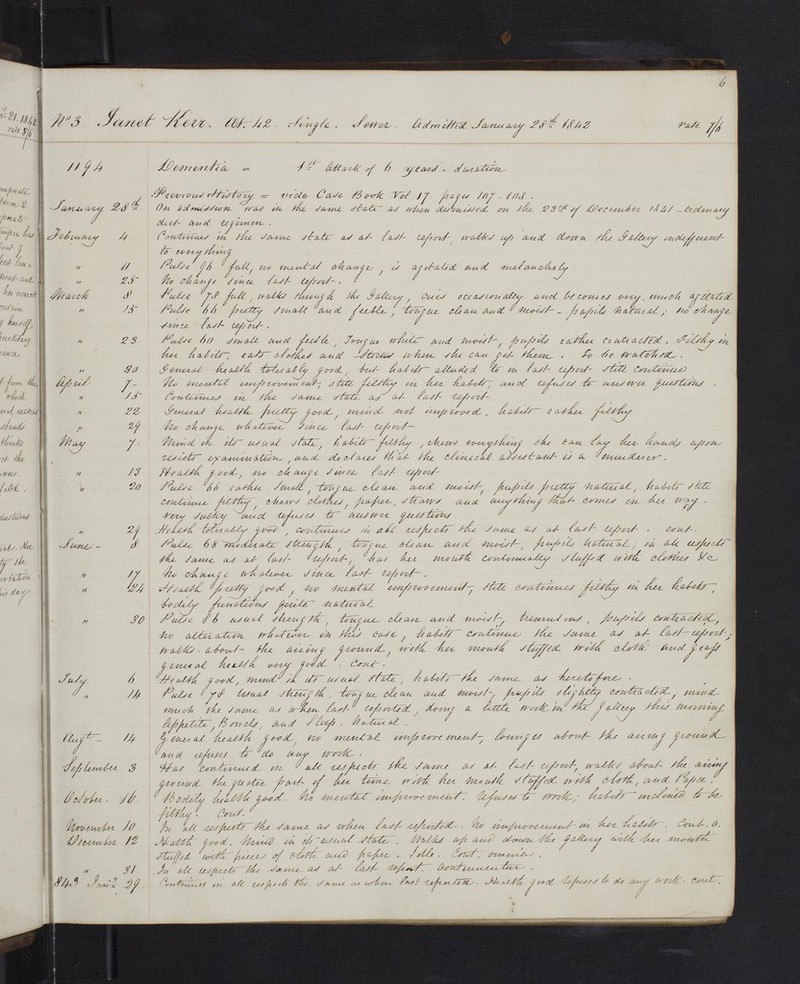 6
No 3 Janet Kerr. Æt. 42. Single. Sewer. Admitted January 28th 1842 rate 7/6
1194 Dementia = 1st Attack of 6 years duration
Previous History = vide Case Book Vol 17 pages 107. 108.
January 28th On admission was in the same state as when dismissed on the 23rd of December 1841 - Ordinary
diet and regimen.
February 4 Continues in the same state as at last report, walks up and down the Gallery indifferent
to everything
" 11 Pulse 96 full, no mental change, is agitated and melancholy
" 25 No change since last report.
March 8 Pulse 78 full, walks through the Gallery, cries occasionally and becomes very much agitated
" 15 Pulse 66 pretty small and feeble, tongue clean and moist - pupils natural; no change
since last report.
" 23 Pulse 60 small and feeble, Tongue white and moist, pupils rather contracted. Filthy in
her habits, eats clothes and straws when she can get them. To be watched.
" 30 General health tolerably good, but habit alluded to in last report still continues
April 7 - No mental improvement; still filthy in her habits, and refuses to answer questions.
" 15 Continues in the same state as at last report
" 22 General health pretty good, mind not improved. habits rather filthy
" 29 No change whatever since last report
May 7 Mind in its usual state, habits filthy, chews everything she can lay her hands upon
resists examination, and declares that the clinical assistant is a murderer.
" 13 Health good, no change since last report
" 20 Pulse 66 rather small, tongue clean and moist, pupils pretty natural, habits still
continue filthy, chews clothes, paper, straws and anything that comes in her way.
very sulky and refuses to answer questions
" 29 Health tolerably good, continues in all respects the same as at last report. cont.
June - 8 Pulse 68 moderate strength, tongue clean and moist, pupils natural; in all respects
the same as at last report, has her mouth continually stuffed with clothes &c
" 17 No change whatever since last report.
" 24 Health pretty good, no mental improvement, still continues filthy in her habits,
bodily functions quite natural
" 30 Pulse 86 usual strength, tongue clean and moist, tremulous, pupils contracted,
no alteration whatever in this case, habits continue the same as at last report,
walks about the airing ground, with her mouth stuffed with cloth and grass
general health very good. Cont.
July 6 Health good, mind in its usual state, habits the same as heretofore.
" 14 Pulse 78 usual strength. tongue clean and moist, pupils slightly contracted, mind
much the same as when last reported, doing a little work in the Gallery this morning
Appetite, Bowels, and Sleep. Natural.
Augt - 14 General health good, no mental improvement, lounges about the airing ground
and refuses to do any work.
September 3 Has continued in all respects the same as at last report, walks about the airing
ground the greater part of her time with her mouth stuffed with cloth, and Paper.
October - 16 Bodily health good. No mental improvement. Refuses to work; habits inclined to be
filthy. Cont.
November 10 In all respects the same as when last reported. No improvement in her habits. Cont. o.
December 12 Health good. Mind in its usual state. Walks up and down the Gallery with her mouth
stuffed with pieces of cloth and paper. Idle. Cont. omnia.
" 31 In all respects the same as at last report. Continuentur.
1843 Jany 29. Continues in all respects the same as when last reported. Health good. Refuses to do any work. cont.